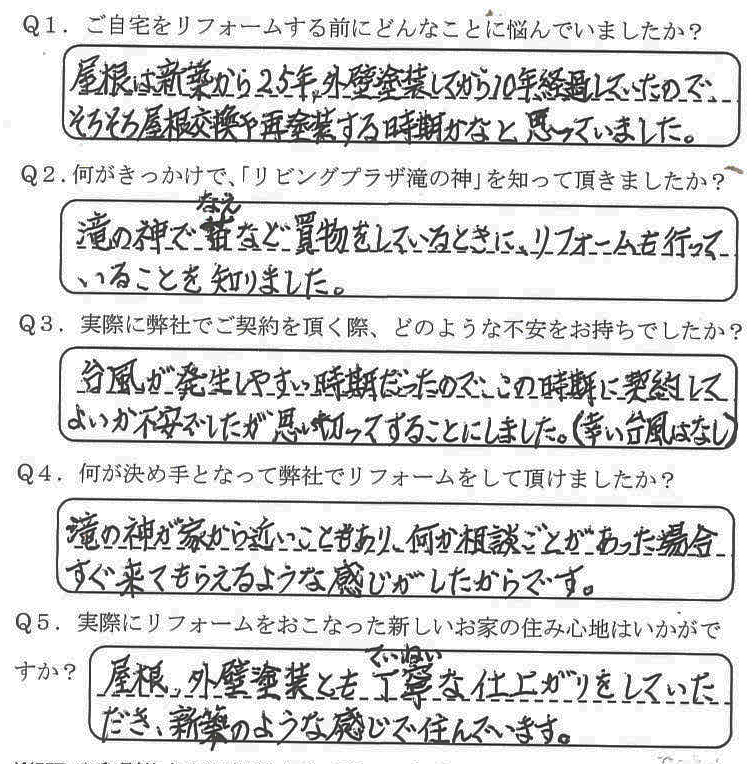 Q1．ご自宅をリフォームする前にどんなことに悩んでいましたか？
屋根は新築から25年,外壁塗装してから10年経過していたので、
そろそろ屋根交換や再塗装する時期かなと思っていました。
Q2.何がきっかけで、「リビングプラザ滝の神」を知って頂きましたか？
なえ
滝の神で苗など買物をしているときに、リフォームも行って
いることを知りました。
Q3．実際に弊社でご契約を頂く際、どのような不安をお持ちでしたか？
台風が発生しやすい時期だったので、この時期に契約して
よいか不安でしたが思い切ってすることにしました。(幸い台風はなし)
Q4．何が決め手となって弊社でリフォームをして頂けましたか？
滝の神が家から近いこともあり、何か相談ごとがあった場合
すぐ来てもらえるような感じがしたからです。
Q5．実際にリフォームをおこなった新しいお家の住み心地はいかがで
すか？
ていねい
屋根,外壁塗装とも丁寧な仕上がりをしていた
だき、新築のような感じで住んでいます。